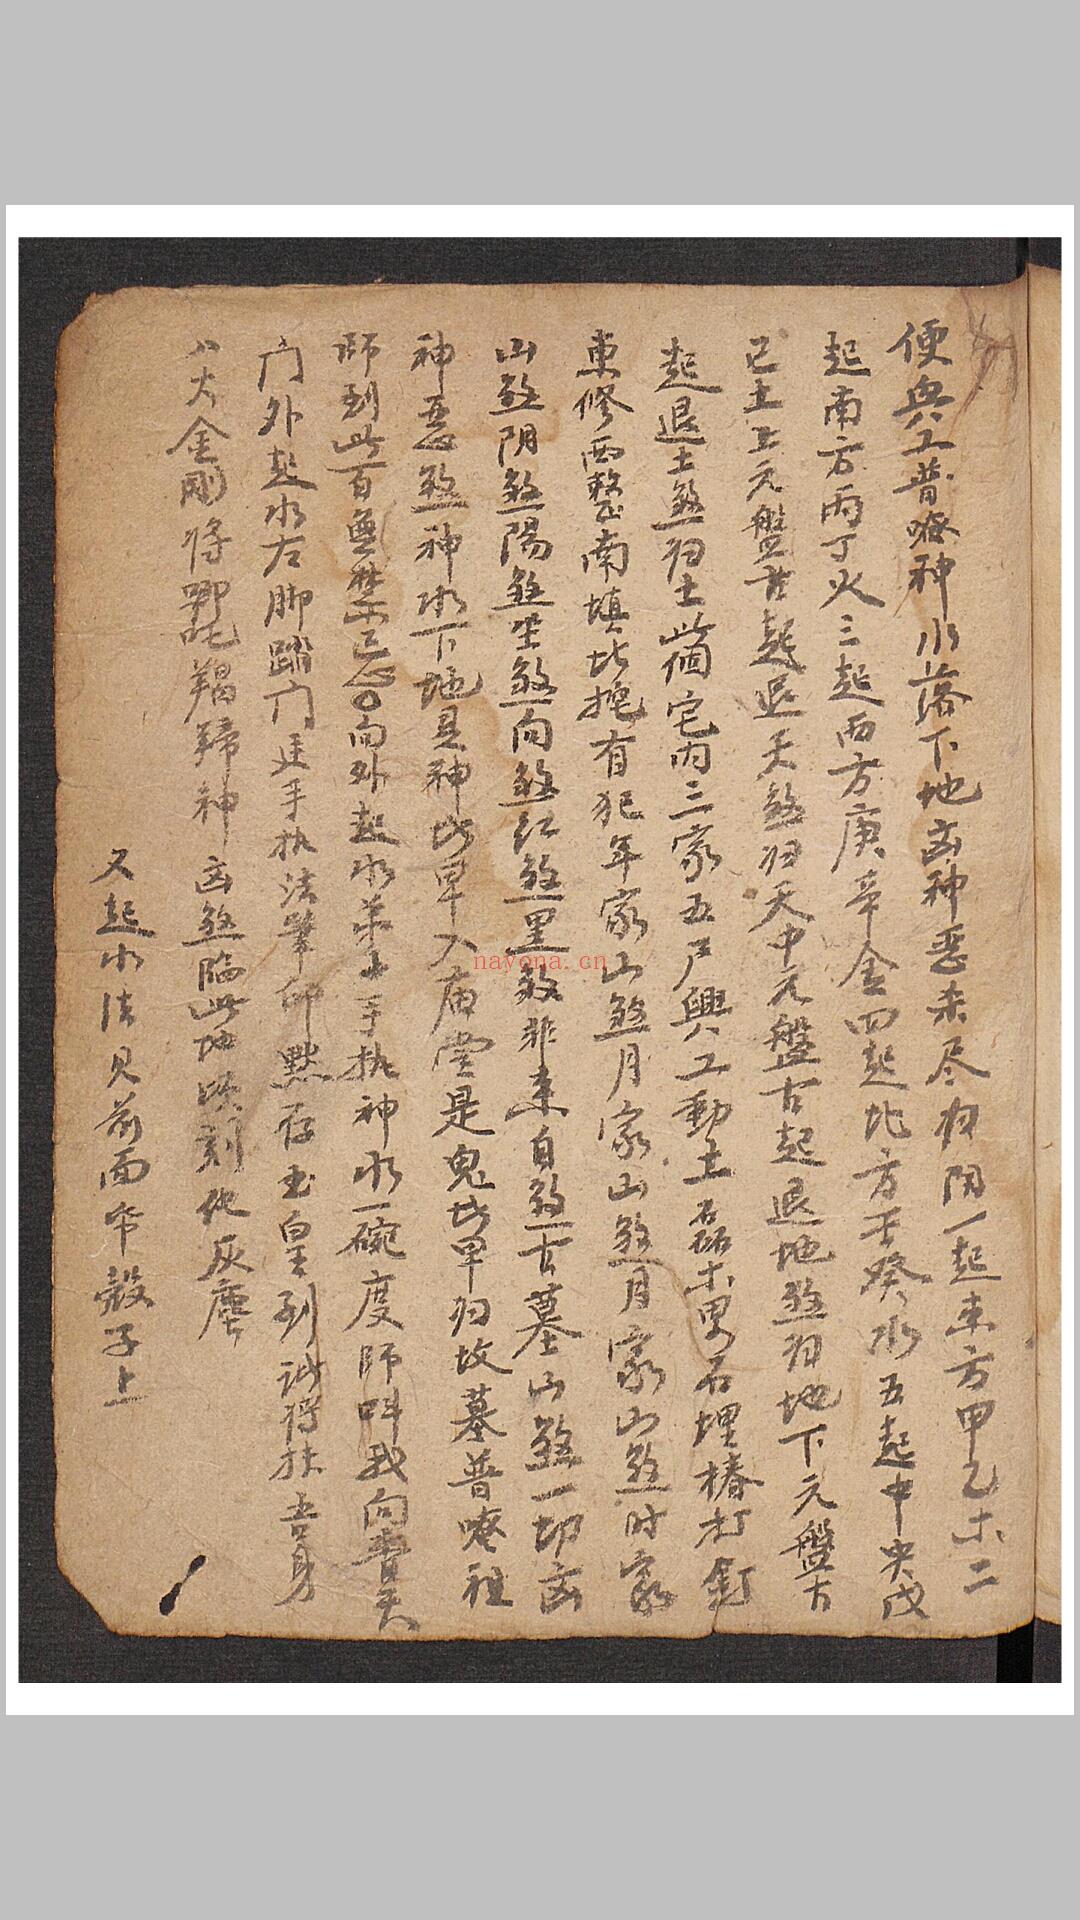 便興工普唵神水落下地凶神惡杀尽归阴一起東方甲乙木二
起南方丙丁火三起西方庚辛金四起北方壬癸水五起中央戊
己土上元盤古起退天煞归天中元盤古起退地煞归地下元盤古
起退土煞归土此個宅内三家五户興工動土磊木畏石埋椿打釘
東修西整南填北挖有犯年家山煞月家山煞月家山煞时家
山煞阴煞陽煞坐煞向煞红煞黑煞非来自煞古墓山煞一切凶
神惡煞神水下地是神皆早入庙堂是鬼皆早归故墓普唵祖
师到此百無禁忌○向外起水弟子手执神水一碗度师叫我向
门外起水左脚踏门廷手执法筆印點存玉皇到 扶吾身
八大金剛将唧吒羯蹄神凶煞臨此地 刻化灰塵
又起水法見前面 殼子上
nayona.cn